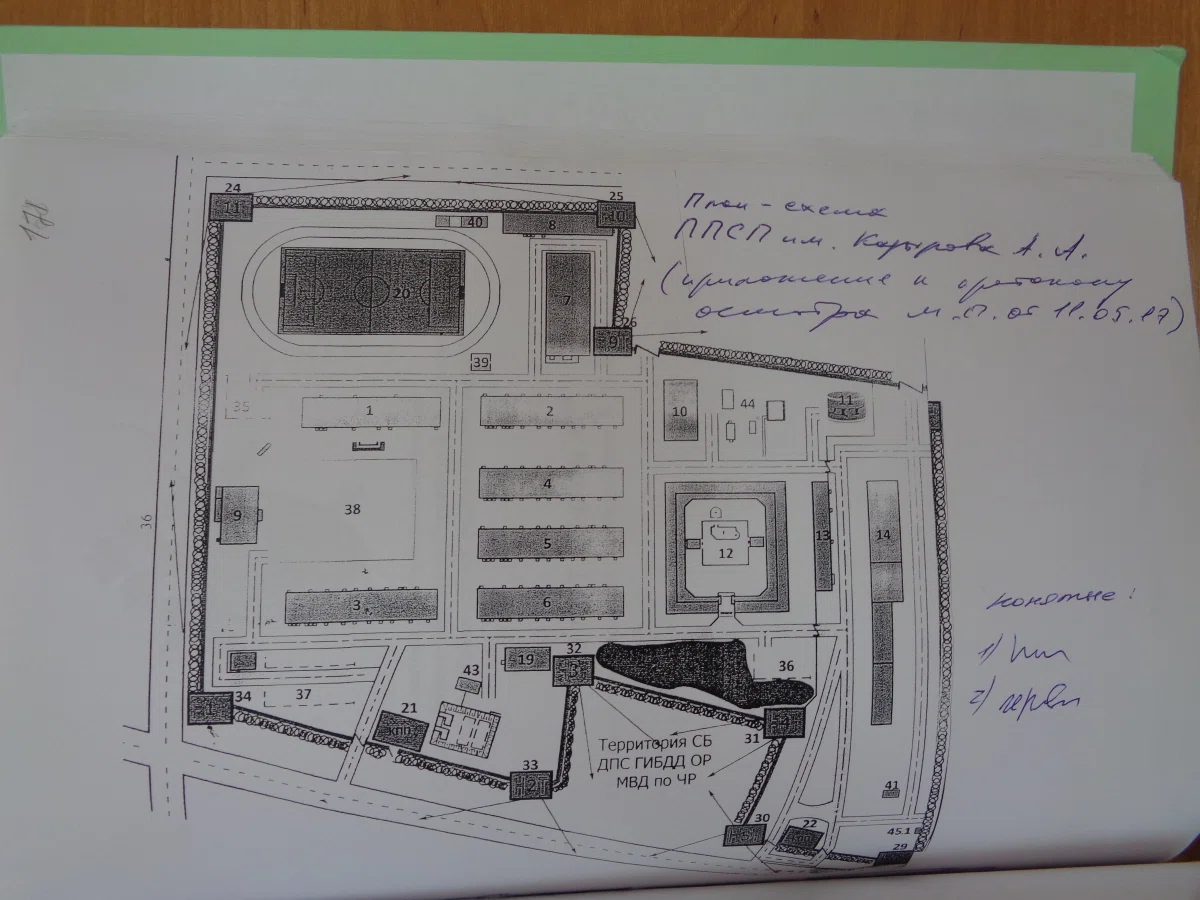 178
План-схема
ППСП им. Кадырова А.А.
(приложение к протоколу
осмотра м.п. от 11.05.17)
понятые:
1)
2)
24
11
25
10
40
8
20
7
26
9
39
35
1
2
10
44
11
36
9
38
4
5
6
3
12
13
14
19
32
3
36
43
37
34
1
21
КПП
33
2
31
4
Территория СБ
ДПС ГИБДД ОР
МВД по ЧР
30
5
22
КПП
41
45.1
29